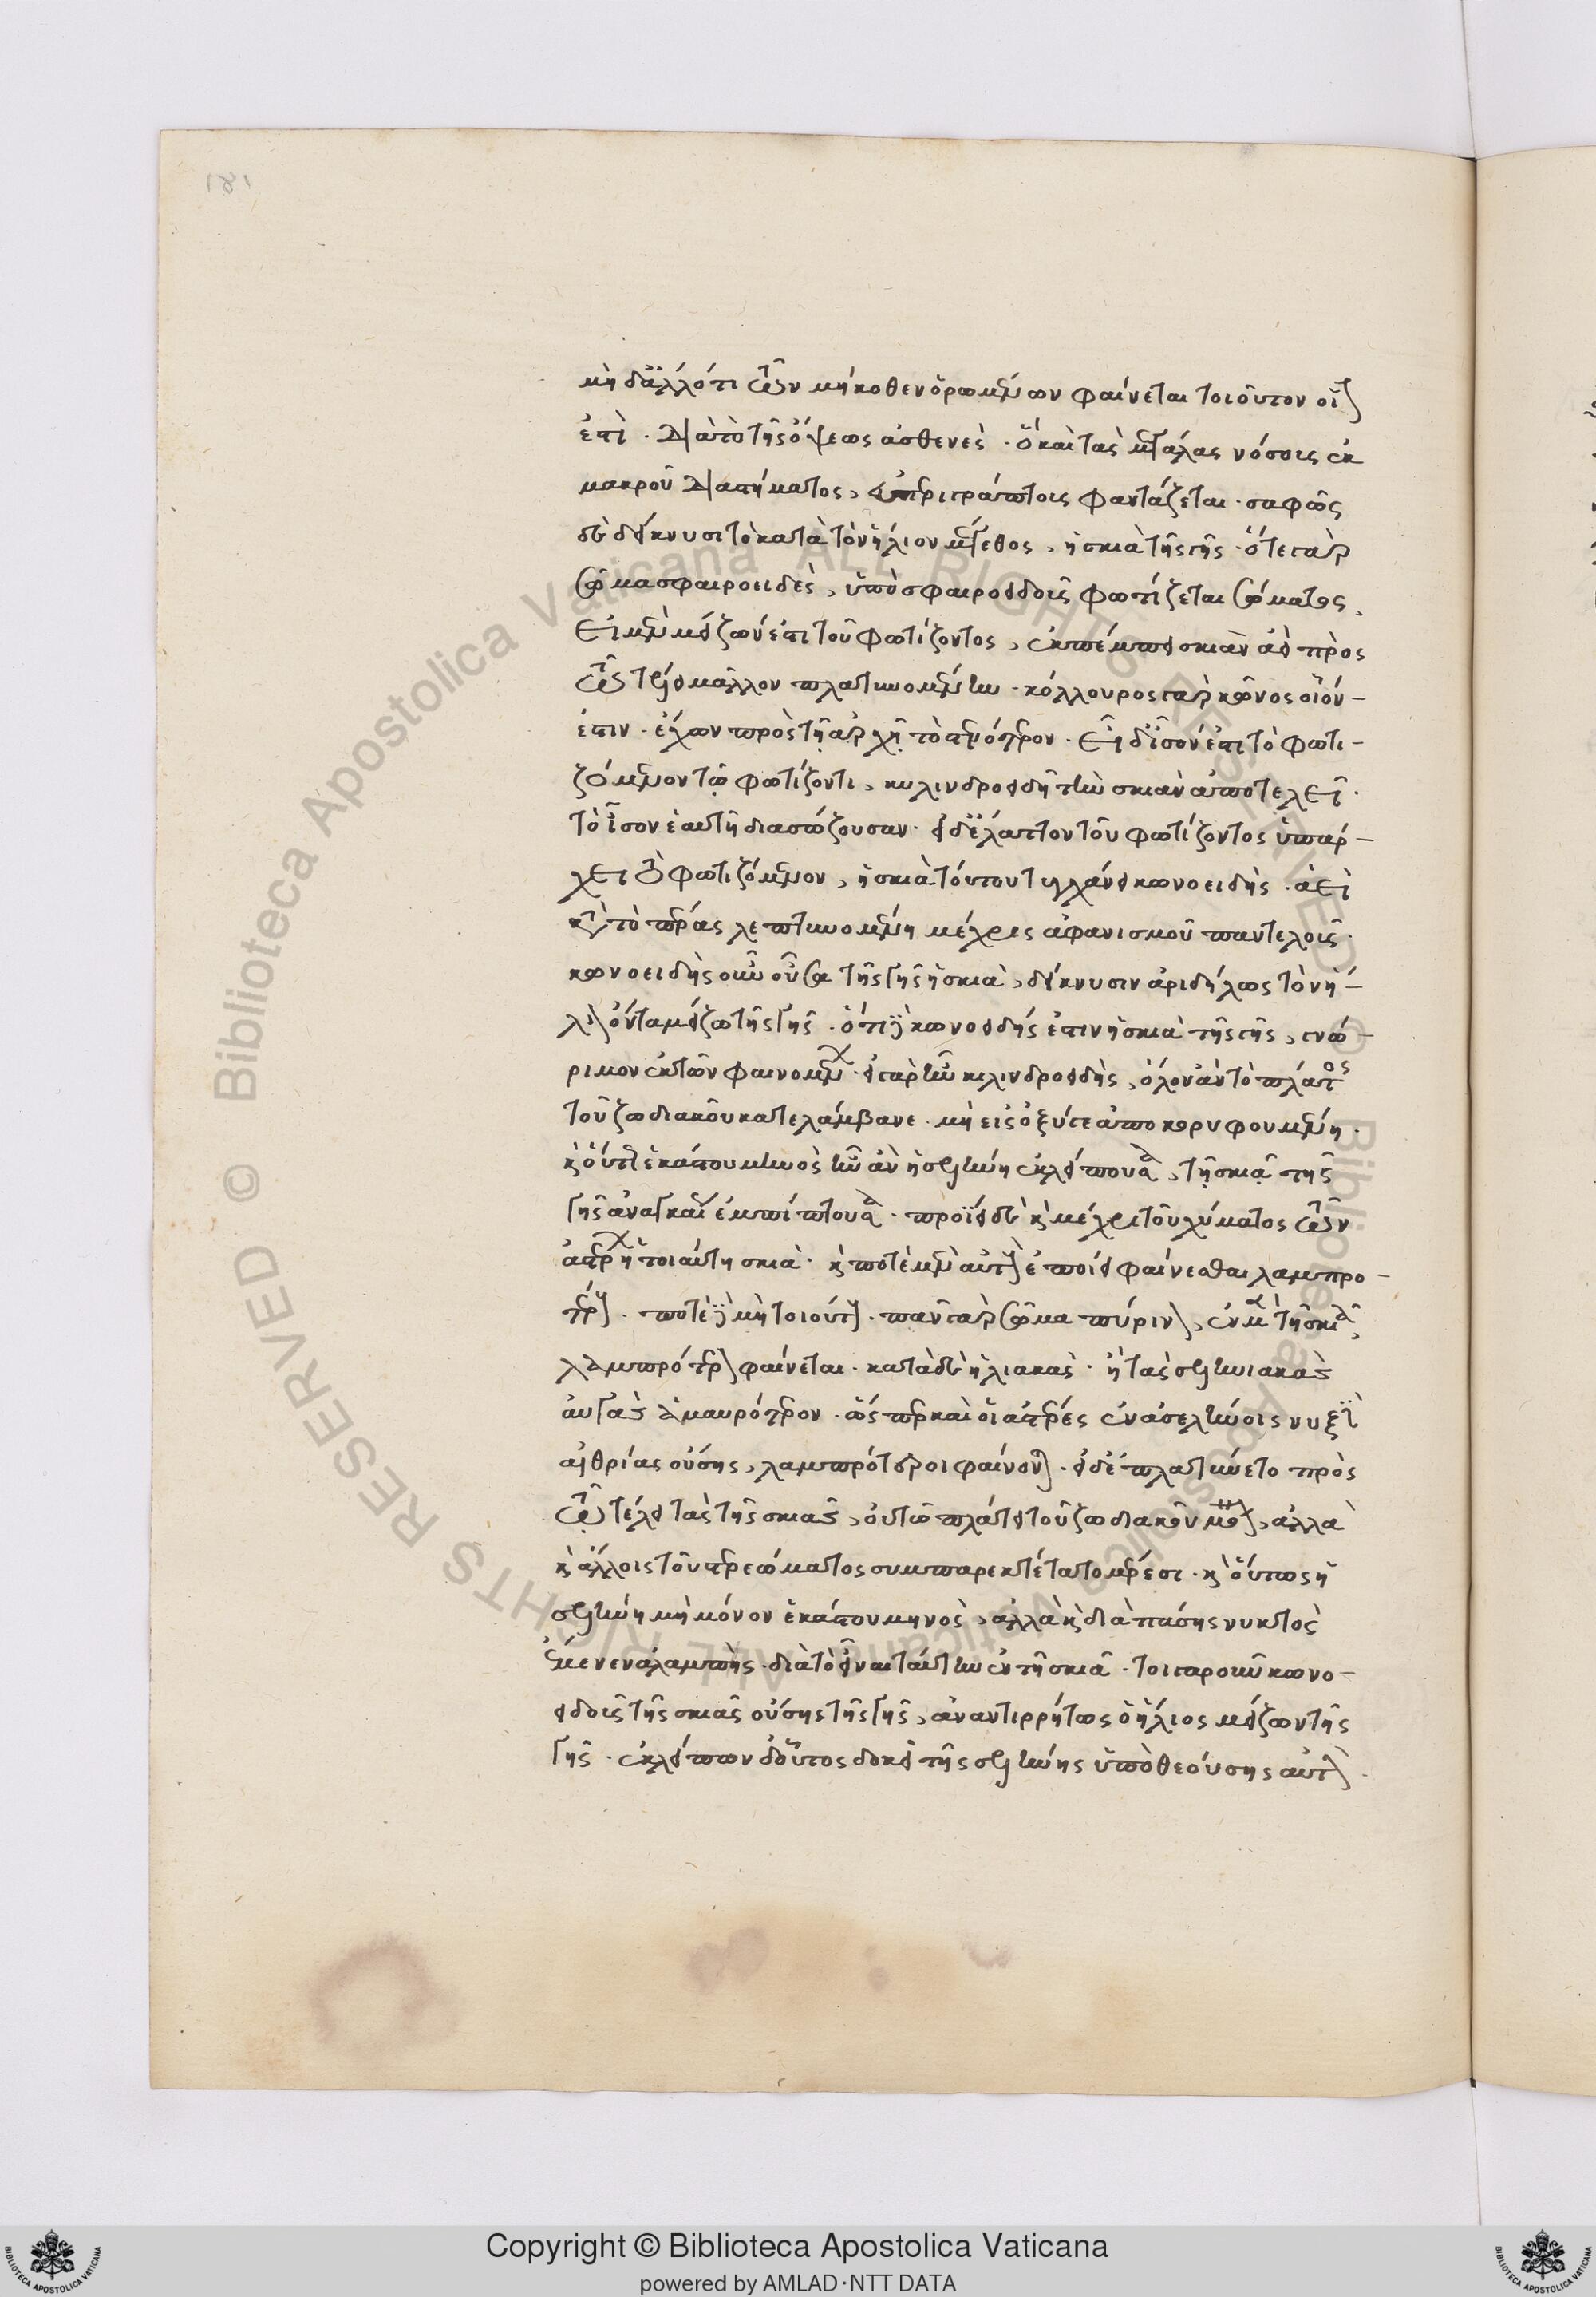 181
μὴ δ' ἄλλό τι τῶν μήκοθεν ὁρωμένων φαίνεται τοιοῦτον οἷόν
ἐστι. διὰ τὸ τῆς ὄψεως ἀσθενὲς. ὃ καὶ τὰς μεγάλας νόσοις ἐκ
μακροῦ διαστήματος, φαντάζεται. σαφῶς
δὲ δείκνυσι τὸ κατὰ τὸν ἥλιον μέγεθος, ἡ σκιὰ τῆς γῆς. ὅτε γὰρ
σῶμα σφαιροειδὲς, ὑπὸ σφαιροειδοῦς φωτίζεται σώματος,
εἰ μὲν μεῖζόν ἐστι τοῦ φωτίζοντος, ἐκπέμπει σκιὰν ἀεὶ πρὸς
μᾶλλον πλατυνομένην. κόλλουρος γὰρ κῶνος οἷόν-
ἐστιν. ἔχων πρὸς τῇ ἀρχῇ τὸ στενότερον. εἰ δ' ἴσον ἐστι τὸ φωτι-
ζόμενον τῷ φωτίζοντι, κυλινδροειδῆ τὴν σκιὰν ἀποτελεῖ.
τὸ ἴσον ἑαυτῇ διασώζουσαν. εἰ δ' ἔλαττον τοῦ φωτίζοντος ὑπάρ-
χει τὸ φωτιζόμενον, ἡ σκιὰ τούτου τυγχάνει κωνοειδὴς. ἀεὶ
κατὰ τὸ πέρας λεπτυνομένη μέχρις ἀφανισμοῦ παντελοῦς.
κωνοειδὴς οὖν οὖσα τῆς γῆς ἡ σκιὰ, δείκνυσιν ἀριδήλως τὸν ἥ-
λιον ὄντα μείζω τῆς γῆς. ὅτι δὲ κωνοειδής ἐστιν ἡ σκιὰ τῆς γῆς, γνώ-
ριμον ἐκ τῶν φαινομένων. εἰ γὰρ ἦν κυλινδροειδὴς, ὅλον ἂν τὸ πλάτος
τοῦ ζωδιακοῦ κατελάμβανε. μὴ εἰς ὀξύ τε ἀποκορυφουμένη.
καὶ οὕτως ἑκάστου μηνὸς ἦν ἂν ἡ σελήνη ἐκλείπουσα, τῇ σκιᾷ τῆς
γῆς ἀναγκαίως ἐμπίπτουσα. προΐει δὲ καὶ μέχρι τοῦ χύματος τῶν
ἀστέρων ἡ τοιαύτη σκιὰ. καὶ ποτὲ μὲν αὐτοὺς ἐποίει φαίνεσθαι λαμπρο-
τέρους. ποτὲ δὲ μὴ τοιούτους. πᾶν γὰρ σῶμα πύρινον, ἐν μὲν τῇ σκιᾷ,
λαμπρότερον φαίνεται. κατὰ δὲ ἡλιακὰς. ἢ τὰς σεληνιακὰς
αὐγὰς ἀμαυρότερον. ὥσπερ καὶ οἱ ἀστέρες ἐν ἀσελήνοις νυξὶ
αἰθρίας οὔσης, λαμπρότεροι φαίνονται. εἰ δὲ ἐπλατύνετο πρὸς
τῷ τέλει τὰς τῆς σκιᾶς, οὐ τῷ πλάτει τοῦ ζωδιακοῦ μόνον, ἀλλὰ
καὶ ἄλλοις τοῦ στερεώματος συμπαρεκτέτατο μέρεσι. καὶ οὕτως ἡ
σελήνη μὴ μόνον ἑκάστου μηνὸς, ἀλλὰ καὶ διὰ πάσης νυκτὸς
ἔμενεν ἀλαμπὴς. διὰ τὸ εἶναι ταύτην ἐν τῇ σκιᾷ. τοιγαροῦν κωνο-
ειδοῦς τῆς σκιᾶς οὔσης τῆς γῆς, ἀναντιρρήτως ὁ ἥλιος μείζων τῆς
γῆς. ἐκλείπων δ' οὗτος δοκεῖ τῆς σελήνης ὑποθεούσης αὐτὸν.
Copyright © Biblioteca Apostolica Vaticana
powered by AMLAD·NTT DATA